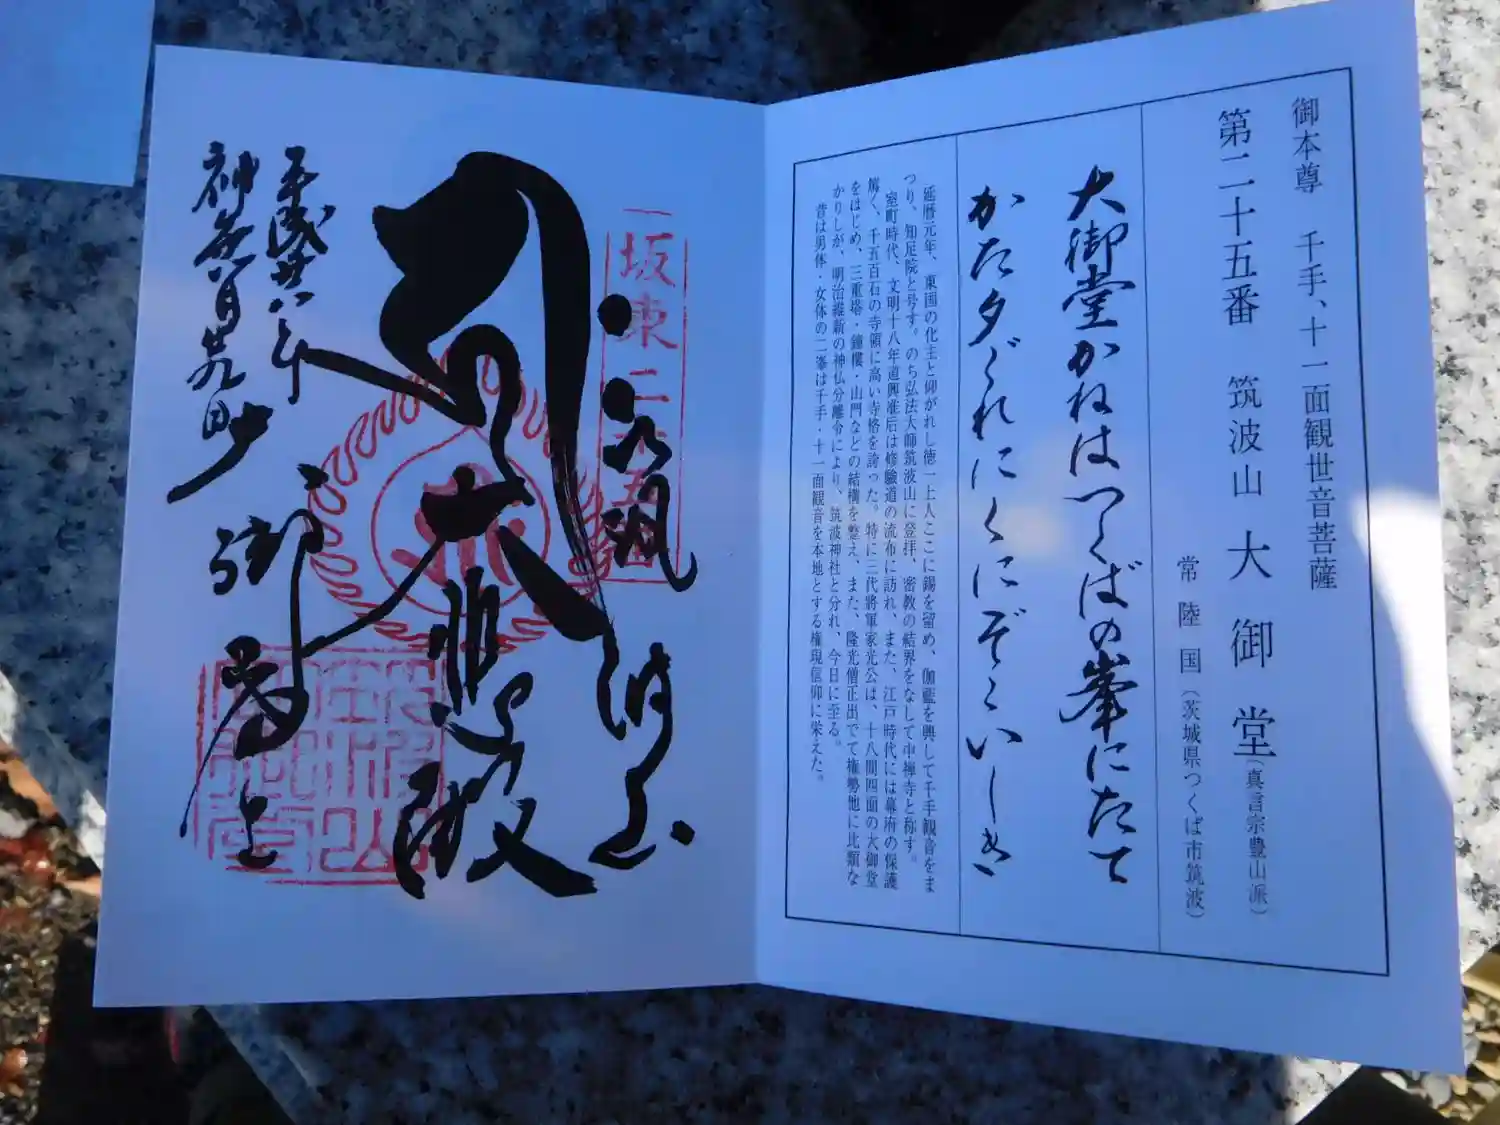 御本尊 千手、十一面観世音菩薩
第二十五番 筑波山 大御堂(真言宗豊山派)
常陸国(茨城県つくば市筑波)
大御堂かねはつくばの峯にたて
かた夕ぐれにくにぞこいしき
延暦元年、東国の化主と仰がれし徳一上人ここに錫を留め、伽藍を興して千手観音をま
つり、知足院と号す。のち弘法大師筑波山に登拝、密教の結界をなして中禅寺と称す。
室町時代、文明十八年道興准后は修験道の流布に訪れ、また、江戸時代には幕府の保護
篤く、千五百石の寺領に高い寺格を誇った。特に三代将軍家光公は、十八間四面の大御堂
をはじめ、三重塔・鐘楼・山門などの結構を整え、また、隆光僧正出でて権勢他に比類な
かりしが、明治維新の神仏分離令により、筑波神社と分れ、今日に至る。
昔は男体・女体の二峯は千手・十一面観音を本地とする権現信仰に栄えた。
坂東二十五番
筑波山
大悲殿
平成廿八年
大御堂